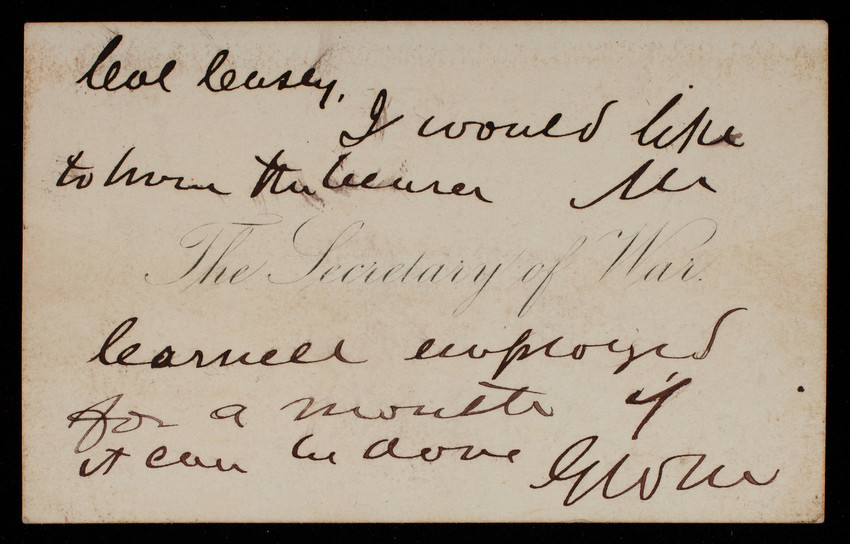 Col Casey,
I would like
to have the bearer Mr
The Secretary of War.
employed
for a month if
it can be done